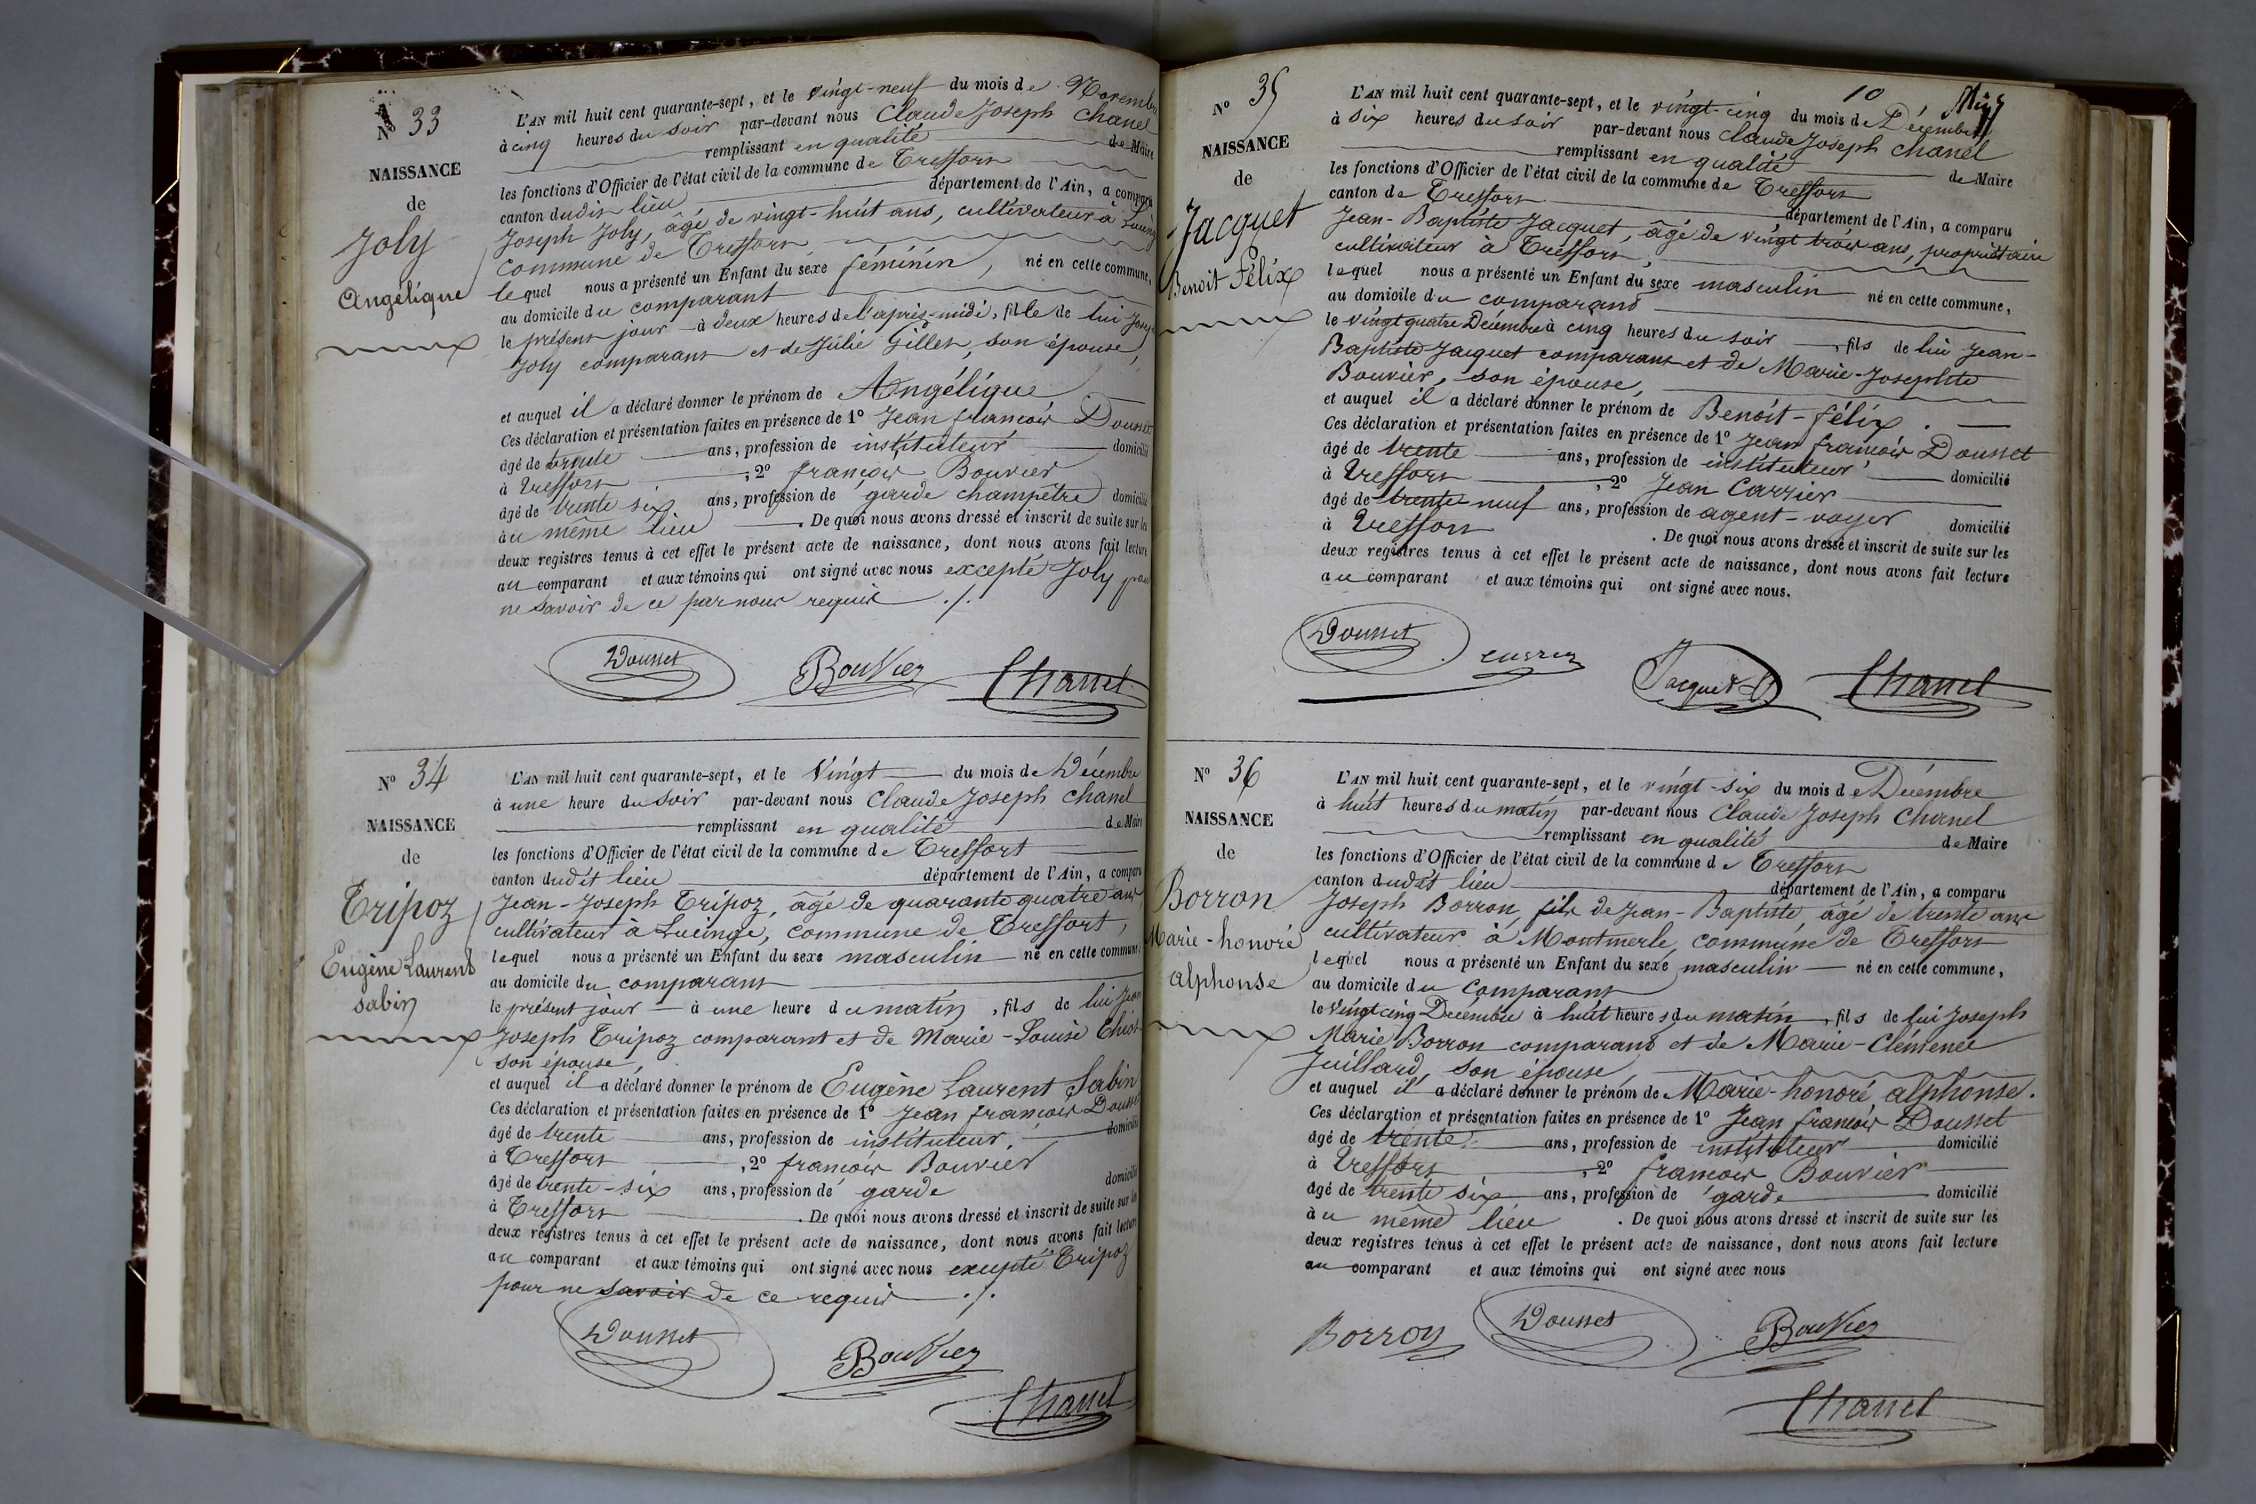 Nº 33
NAISSANCE
de
Joly
Angélique
L'AN mil huit cent quarante-sept, et le vingt-neuf du mois de Novembre
à cinq heures du soir par-devant nous Claude Joseph Chanel
remplissant en qualité de Maire
les fonctions d'Officier de l'état civil de la commune de Treffort
canton dudit lieu département de l'Ain, a comparu
Joseph Joly, âgé de vingt-huit ans, cultivateur à
commune de Treffort
lequel nous a présenté un Enfant du sexe féminin, né en cette commune,
au domicile du comparant
le présent jour à deux heures de l'après-midi, fille de lui Joseph
Joly comparant et de Julie Gillet, son épouse,
et auquel il a déclaré donner le prénom de Angélique
Ces déclaration et présentation faites en présence de 1º Jean françois Dousset
âgé de trente ans, profession de instituteur domicilié
à Treffort, 2º françois Bouvier
âgé de trente six ans, profession de garde champêtre domicilié
au même lieu. De quoi nous avons dressé et inscrit de suite sur les
deux registres tenus à cet effet le présent acte de naissance, dont nous avons fait lecture
au comparant et aux témoins qui ont signé avec nous excepté Joly pour
ne savoir de ce par nous requis ./.
Dousset Bouvier Chanel
Nº 34
NAISSANCE
de
Tripoz
Eugène Laurent
sabin
L'AN mil huit cent quarante-sept, et le Vingt du mois de Décembre
à une heure du soir par-devant nous Claude Joseph Chanel
remplissant en qualité de Maire
les fonctions d'Officier de l'état civil de la commune de Treffort
canton dudit lieu département de l'Ain, a comparu
Jean-Joseph Tripoz, âgé de quarante quatre ans
cultivateur à Lucinge, commune de Treffort,
lequel nous a présenté un Enfant du sexe masculin né en cette commune,
au domicile du comparant
le présent jour à une heure du matin, fils de lui Jean
Joseph Tripoz comparant et de Marie-Louise
son épouse,
et auquel il a déclaré donner le prénom de Eugène Laurent Sabin
Ces déclaration et présentation faites en présence de 1º Jean françois Dousset
âgé de trente ans, profession de instituteur, domicilié
à Treffort, 2º françois Bouvier
âgé de trente-six ans, profession de garde domicilié
à Treffort. De quoi nous avons dressé et inscrit de suite sur les
deux registres tenus à cet effet le présent acte de naissance, dont nous avons fait lecture
au comparant et aux témoins qui ont signé avec nous excepté Tripoz
pour ne savoir de ce requis ./.
Dousset Bouvier
Chanel
10
Nº 35
NAISSANCE
de
Jacquet
Benoit Félix
L'AN mil huit cent quarante-sept, et le vingt-cinq du mois de Décembre
à six heures du soir par-devant nous Claude Joseph Chanel
remplissant en qualité de Maire
les fonctions d'Officier de l'état civil de la commune de Treffort
canton de Treffort département de l'Ain, a comparu
Jean-Baptiste Jacquet, âgé de vingt trois ans, propriétaire
cultivateur à Treffort,
lequel nous a présenté un Enfant du sexe masculin né en cette commune,
au domicile du comparant
le vingt quatre Décembre à cinq heures du soir, fils de lui Jean-
Baptiste Jacquet comparant et de Marie-Josephte
Bouvier, son épouse,
et auquel il a déclaré donner le prénom de Benoît-félix.
Ces déclaration et présentation faites en présence de 1º Jean françois Dousset
âgé de trente ans, profession de instituteur domicilié
à Treffort, 2º Jean Carrier
âgé de trente-neuf ans, profession de agent-voyer domicilié
à Treffort. De quoi nous avons dressé et inscrit de suite sur les
deux registres tenus à cet effet le présent acte de naissance, dont nous avons fait lecture
au comparant et aux témoins qui ont signé avec nous.
Dousset Jacquet Chanel
Nº 36
NAISSANCE
de
Borron
Marie-honoré
alphonse
L'AN mil huit cent quarante-sept, et le vingt-six du mois de Décembre
à huit heures du matin par-devant nous Claude Joseph Chanel
remplissant en qualité de Maire
les fonctions d'Officier de l'état civil de la commune de Treffort
canton dudit lieu département de l'Ain, a comparu
Joseph Borron, fils de Jean-Baptiste âgé de trente ans
cultivateur à Montmerle, commune de Treffort
lequel nous a présenté un Enfant du sexe masculin né en cette commune,
au domicile du comparant
le Vingt cinq Décembre à huit heures du matin, fils de lui Joseph
Marie Borron comparant et de Marie-Clémence
Juillard, son épouse,
et auquel il a déclaré donner le prénom de Marie-honoré alphonse.
Ces déclaration et présentation faites en présence de 1º Jean françois Dousset
âgé de trente ans, profession de instituteur domicilié
à Treffort, 2º françois Bouvier
âgé de trente six ans, profession de garde domicilié
au même lieu. De quoi nous avons dressé et inscrit de suite sur les
deux registres tenus à cet effet le présent acte de naissance, dont nous avons fait lecture
au comparant et aux témoins qui ont signé avec nous
Borron Dousset Bouvier
Chanel